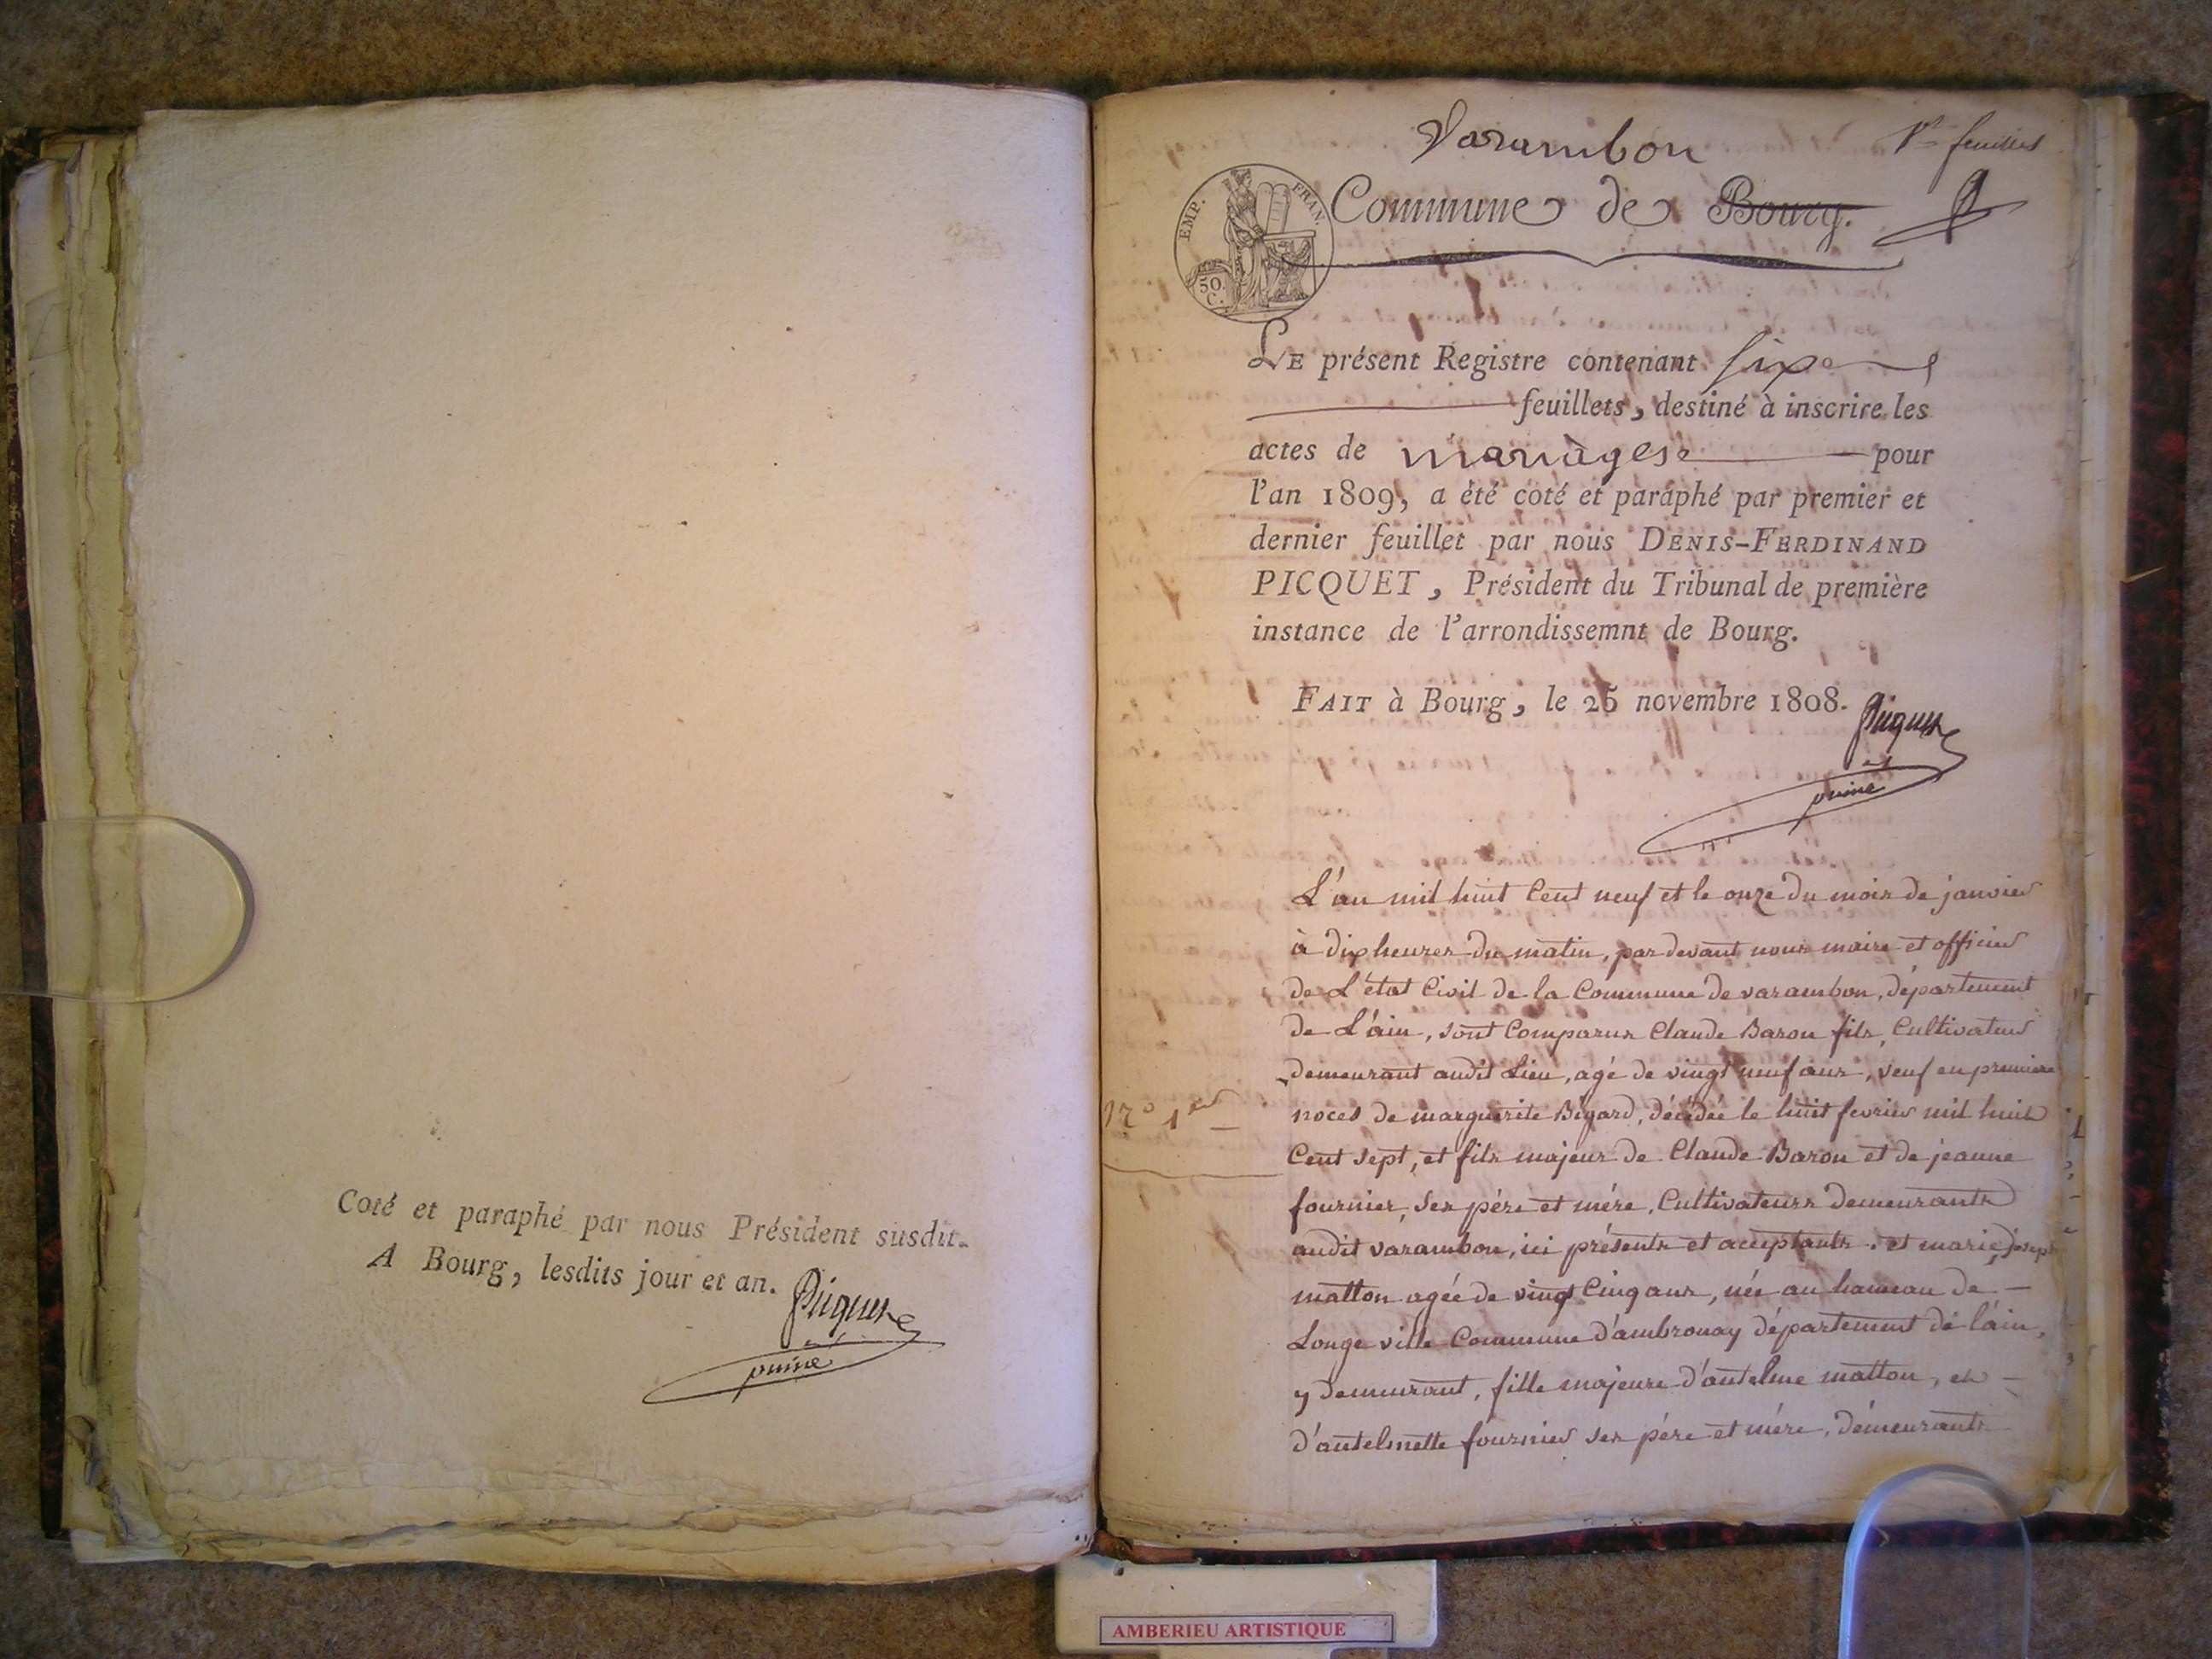 Coté et paraphé par nous Président susdit.
A Bourg, lesdits jour et an.
Picquet
puiné
Varambon
1er feuillet
EMP. FRAN.
50.
C.
Commune de Bourg.
LE présent Registre contenant six
feuillets, destiné à inscrire les
actes de mariages pour
l'an 1809, a été coté et paraphé par premier et
dernier feuillet par nous DENIS-FERDINAND
PICQUET, Président du Tribunal de première
instance de l'arrondissemnt de Bourg.
FAIT à Bourg, le 25 novembre 1808.
Picquet
puiné
L'an mil huit Cent neuf et le onze du mois de janvier
à dix heures du matin, par devant nous maire et officier
de L'état Civil de la Commune de varambon, département
de L'ain, sont Comparus Claude Baron fils, Cultivateur
demeurant audit Lieu, agé de vingt neuf ans, veuf en premiere
N° 1er
noces de marguerite Bigard, décédée le huit fevrier mil huit
Cent sept, et fils majeur de Claude Baron et de jeanne
fournier, ses pére et mére, Cultivateurs demeurants
audit varambon, ici présents et acceptants. et marie joseph
matton agée de vingt Cinq ans, née au hameau de
Longe ville Commune d'ambronay département de l'ain,
y demeurant, fille majeure d'antelme matton, et
d'antelmette fournier ses pére et mére, démeurants
AMBERIEU ARTISTIQUE